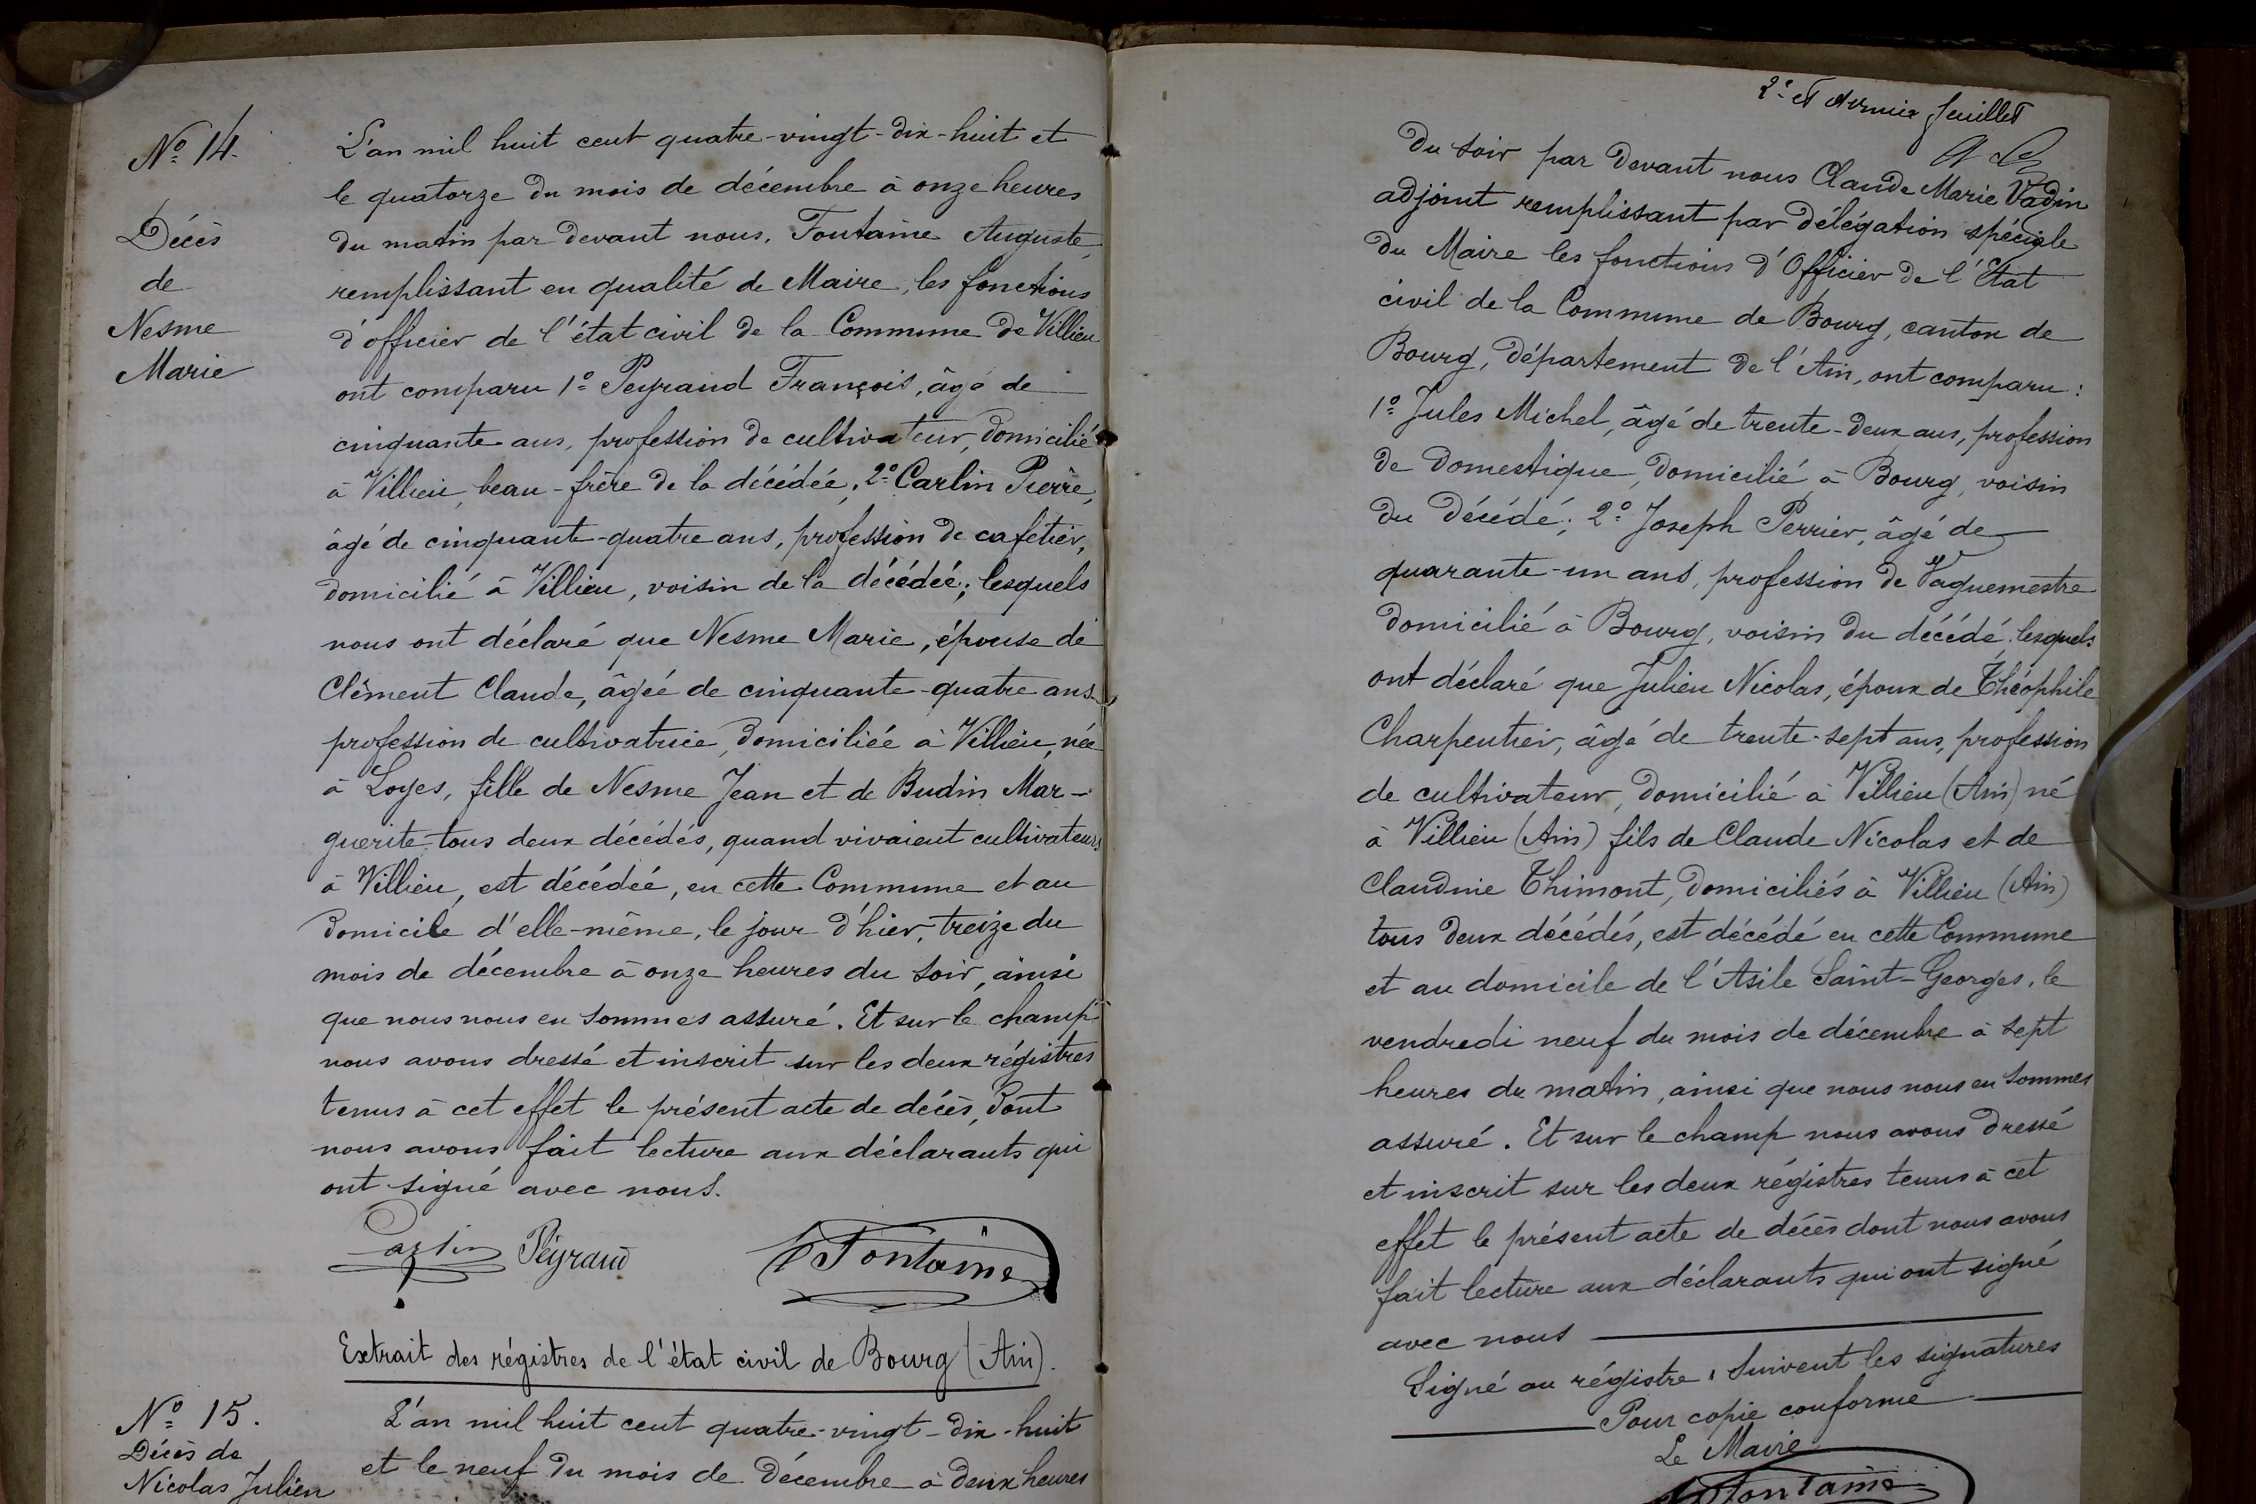 Nº 14.
Décès
de
Nesme
Marie
L'an mil huit cent quatre-vingt-dix-huit et
le quatorze du mois de décembre à onze heures
du matin par devant nous, Fontaine Auguste,
remplissant en qualité de Maire, les fonctions
d'officier de l'état civil de la Commune de Villieu
ont comparu 1º Peyraud François, âgé de
cinquante ans, profession de cultivateur, domicilié
à Villieu, beau-frère de la décédée, 2º Carlin Pierre,
âgé de cinquante-quatre ans, profession de cafetier,
domicilié à Villieu, voisin de la décédée; lesquels
nous ont déclaré que Nesme Marie, épouse de
Clément Claude, âgée de cinquante-quatre ans
profession de cultivatrice, domiciliée à Villieu, née
à Loyes, fille de Nesme Jean et de Budin Mar-
guerite tous deux décédés, quand vivaient cultivateurs
à Villieu, est décédée, en cette Commune et au
domicile d'elle-même, le jour d'hier, treize du
mois de décembre à onze heures du soir, ainsi
que nous nous en sommes assuré. Et sur le champ
nous avons dressé et inscrit sur les deux régistres
tenus à cet effet le présent acte de décès, dont
nous avons fait lecture aux déclarants qui
ont signé avec nous.
Carlin Peyraud Fontaine
Extrait des régistres de l'état civil de Bourg (Ain).
Nº 15.
Décès de
Nicolas Julien
L'an mil huit cent quatre-vingt-dix-huit
et le neuf du mois de Décembre à deux heures
2e et dernier feuillet
du soir par devant nous Claude Marie Vadin
adjoint remplissant par délégation spéciale
du Maire les fonctions d'Officier de l'Etat
civil de la Commune de Bourg, canton de
Bourg, département de l'Ain, ont comparu :
1º Jules Michel, âgé de trente-deux ans, profession
de domestique, domicilié à Bourg, voisin
du décédé; 2º Joseph Perrier, âgé de
quarante-un ans, profession de Vaguemestre
domicilié à Bourg, voisin du décédé, lesquels
ont déclaré que Julien Nicolas, époux de Théophile
Charpentier, âgé de trente-sept ans, profession
de cultivateur, domicilié à Villieu (Ain) né
à Villieu (Ain) fils de Claude Nicolas et de
Claudine Thimont, domiciliés à Villieu (Ain)
tous deux décédés, est décédé en cette Commune
et au domicile de l'Asile Saint-Georges, le
vendredi neuf du mois de décembre à sept
heures du matin, ainsi que nous nous en sommes
assuré. Et sur le champ nous avons dressé
et inscrit sur les deux régistres tenus à cet
effet le présent acte de décès dont nous avons
fait lecture aux déclarants qui ont signé
avec nous
Signé au régistre, suivent les signatures
Pour copie conforme
Le Maire
Fontaine